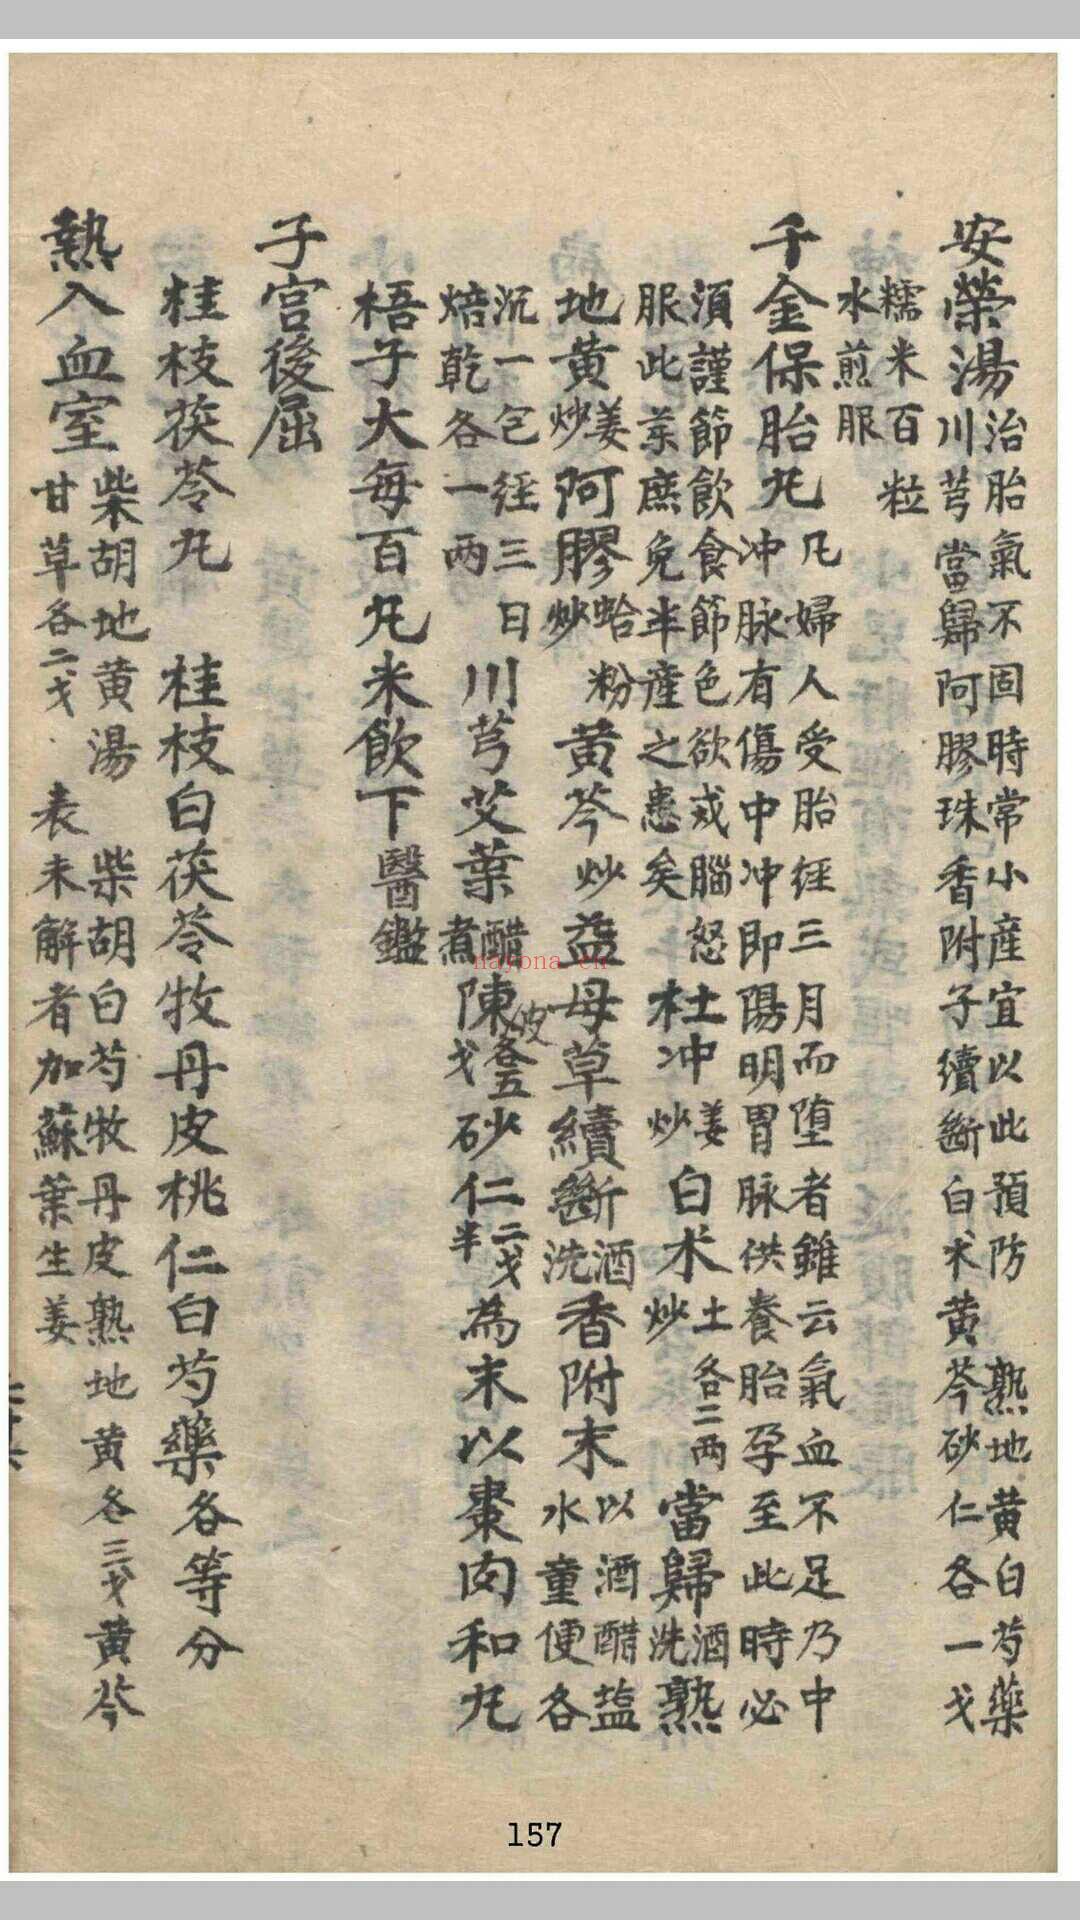 安榮湯 治胎氣不固時常小産宜以此預防 熟地黄白芍藥
川芎當歸阿膠珠香附子續斷白朮黄芩砂仁各一戈
糯米百粒
水煎服
千金保胎丸 凡婦人受胎经三月而堕者雖云氣血不足乃中
冲脉有傷中冲即陽明胃脉供養胎孕至此時必
須謹節飲食節色欲戒腦怒
服此薬庶免半産之患矣
杜冲姜炒白朮土炒各二两當歸酒洗熟
地黄姜炒阿膠蛤粉炒黄芩炒益母草續斷酒洗香附末以酒醋盐水童便各
沉一包经三日焙乾各一两川芎艾葉醋煮陳皮各五戈砂仁二戈半為末以棗肉和丸
梧子大每百丸米飲下醫鑑
子宫後屈
桂枝茯苓丸 桂枝白茯苓牧丹皮桃仁白芍藥各等分
熱入血室 柴胡地黄湯 柴胡白芍牧丹皮熟地黄各三戈黄芩
甘草各二戈 表未解者加蘇葉生姜
nayona.cn
157